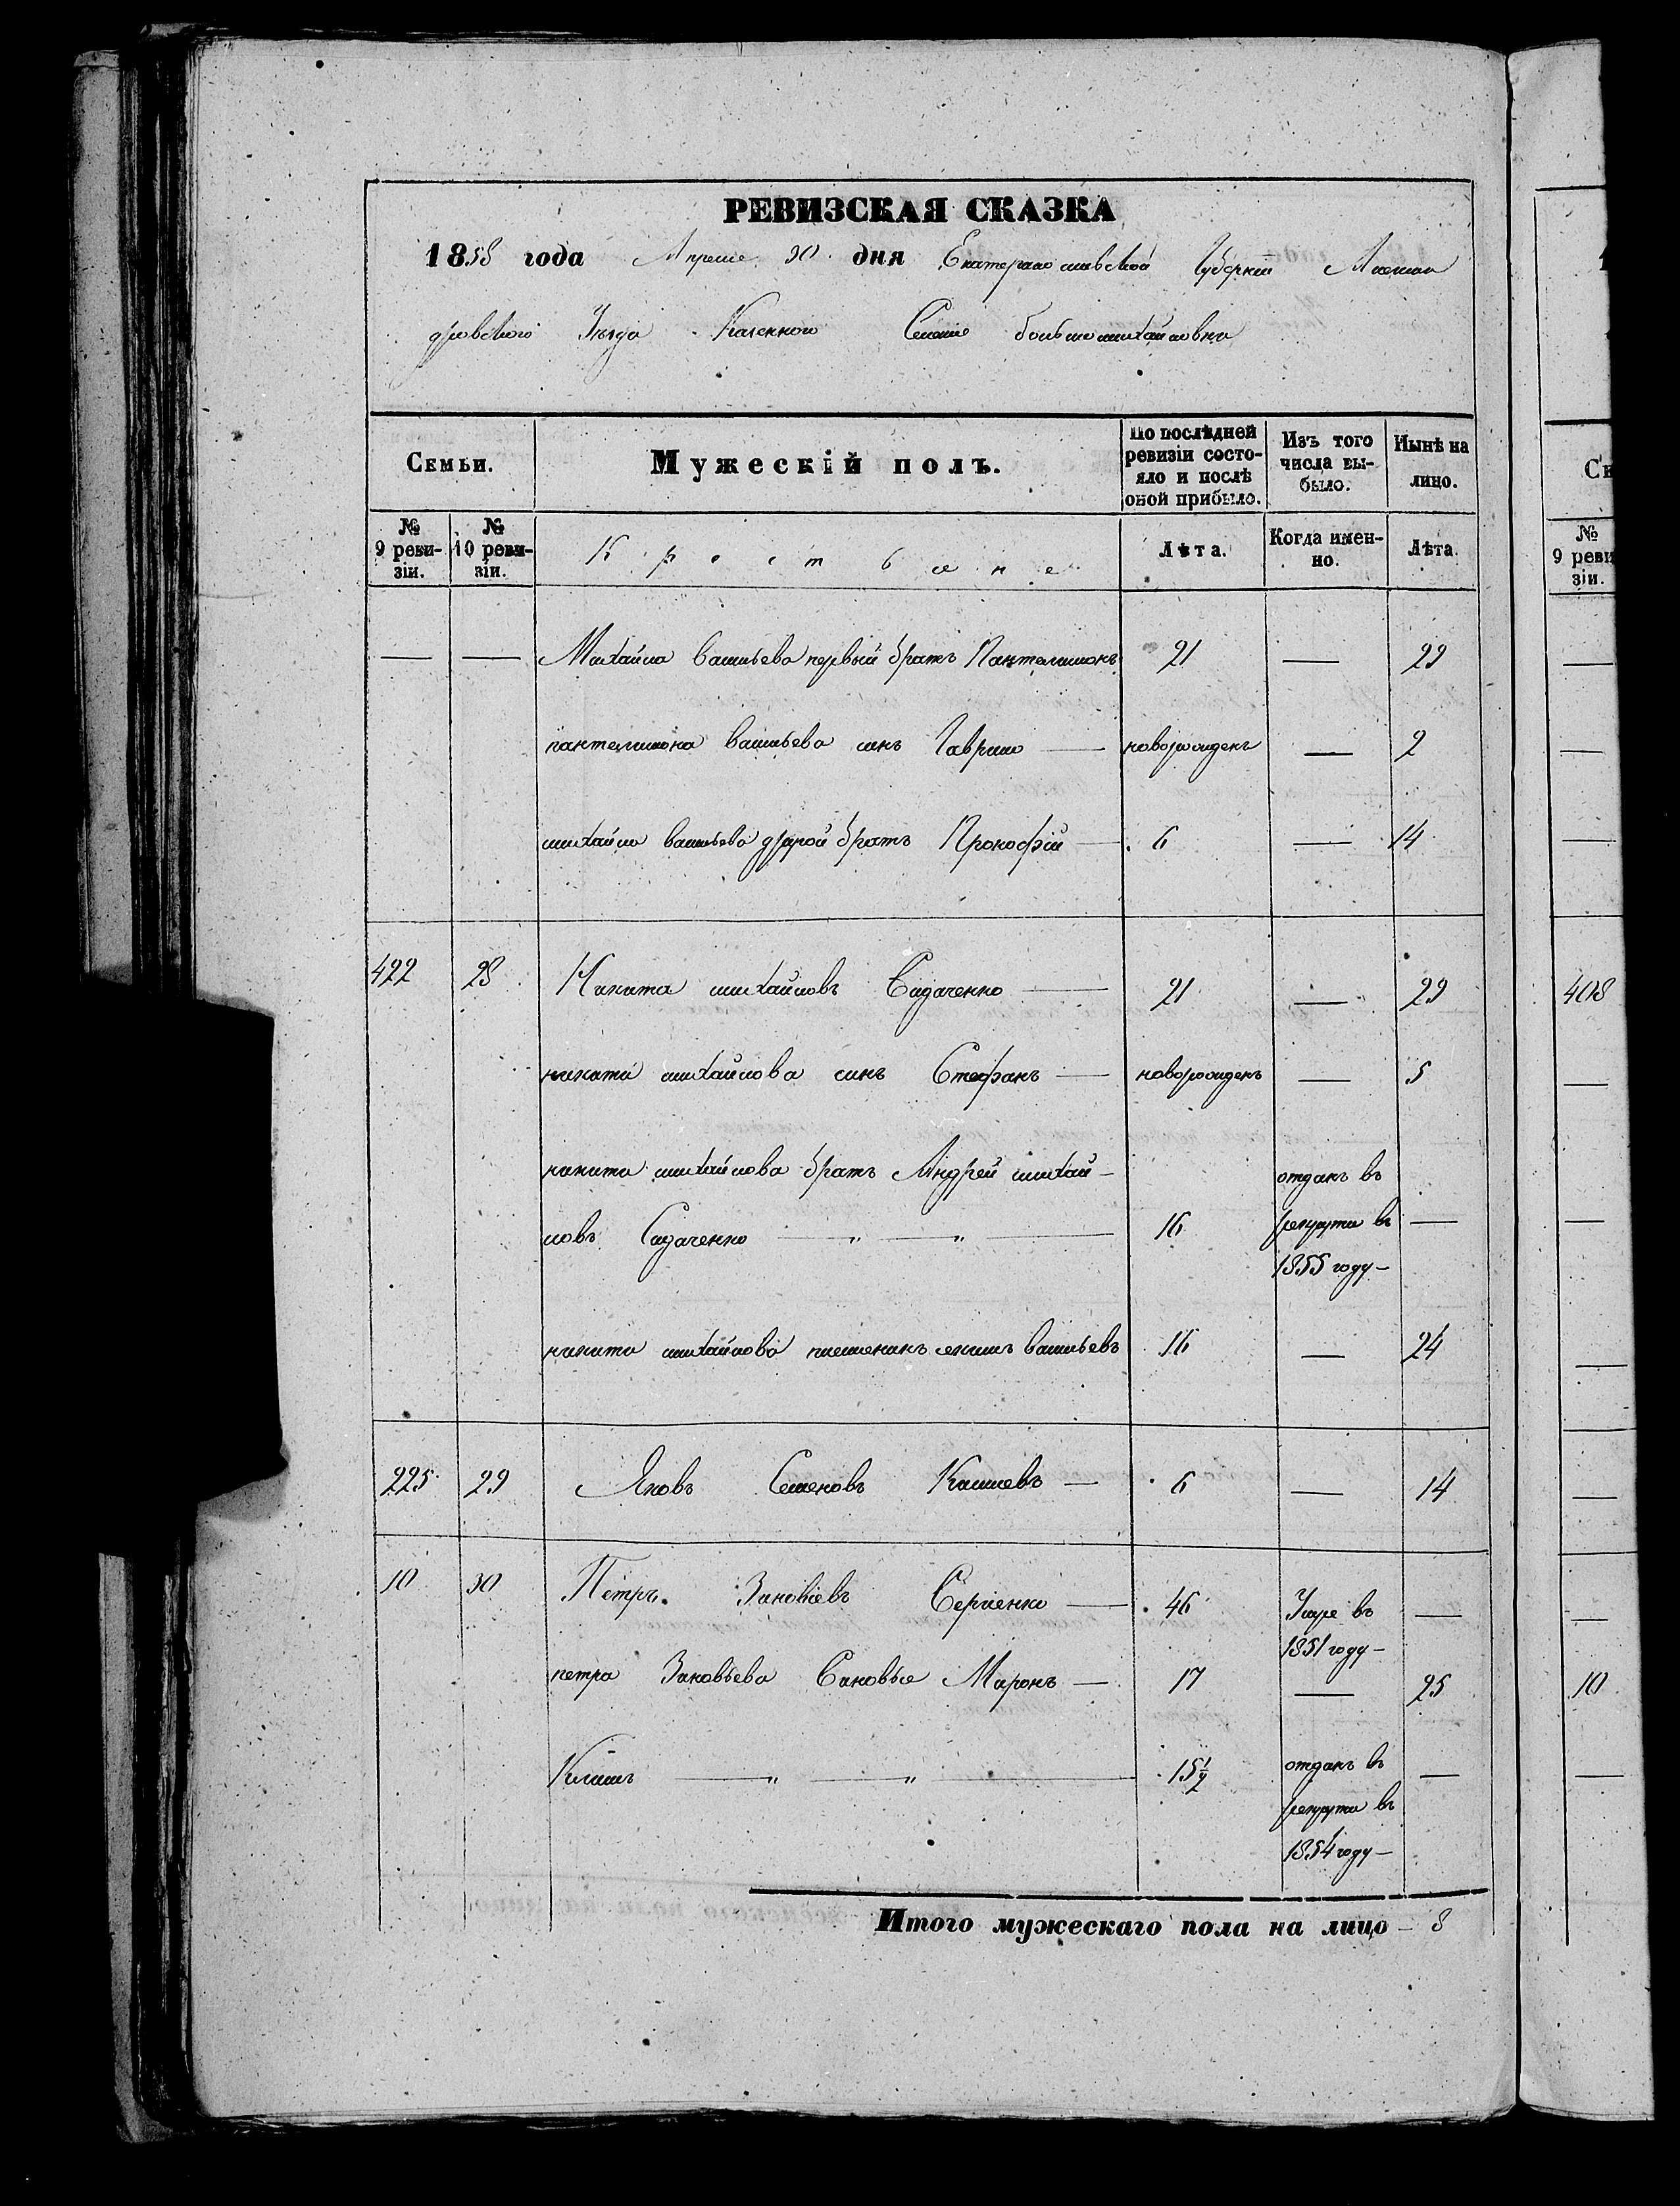 РЕВИЗСКАЯ СКАЗКА
1858 года Апреля 30 дня Екатеринославской Губерніи Алексан
дровского Уѣзда Казенного Селенія большемихайловки
Семьи.
Мужескій полъ.
По послѣдней ревизіи состояло и послѣ оной прибыло.
Изъ того числа выбыло.
Нынѣ на лицо.
№ 9 ревизіи.
№ 10 ревизіи.
Крестьяне
Лѣта.
Когда именно.
Лѣта.
— — Михайла Васильева первый братъ Пантелимонъ 21 — 29
пантелимона васильева синъ Гаврило — новорожденъ — 2
михайла васильева другой братъ Прокофій — 6 — 14
422 28 Никита михайловъ Сидаченко — 21 — 29
никити михайлова синъ Стефанъ — новорожденъ — 5
никити михайлова братъ Андрей михай-
ловъ Сидаченко — „ — „ — 16 отданъ въ рекрути въ 1855 году — —
никити михайлова племеникъ васильевъ 16 — 24
225 29 Яковъ Семеновъ — 6 — 14
10 30 Петръ Зиновіевъ Сергіенко — 46 Умре въ 1851 году — —
петра Зиновьева Синовье Миронъ — 17 — 25
Климъ — „ — „ — 15½ отданъ въ рекрути въ 1854 году — —
Итого мужескаго пола на лицо — 8
Се
№ 9 реви зіи.
—
—
—
408
—
—
—
—
—
10
—